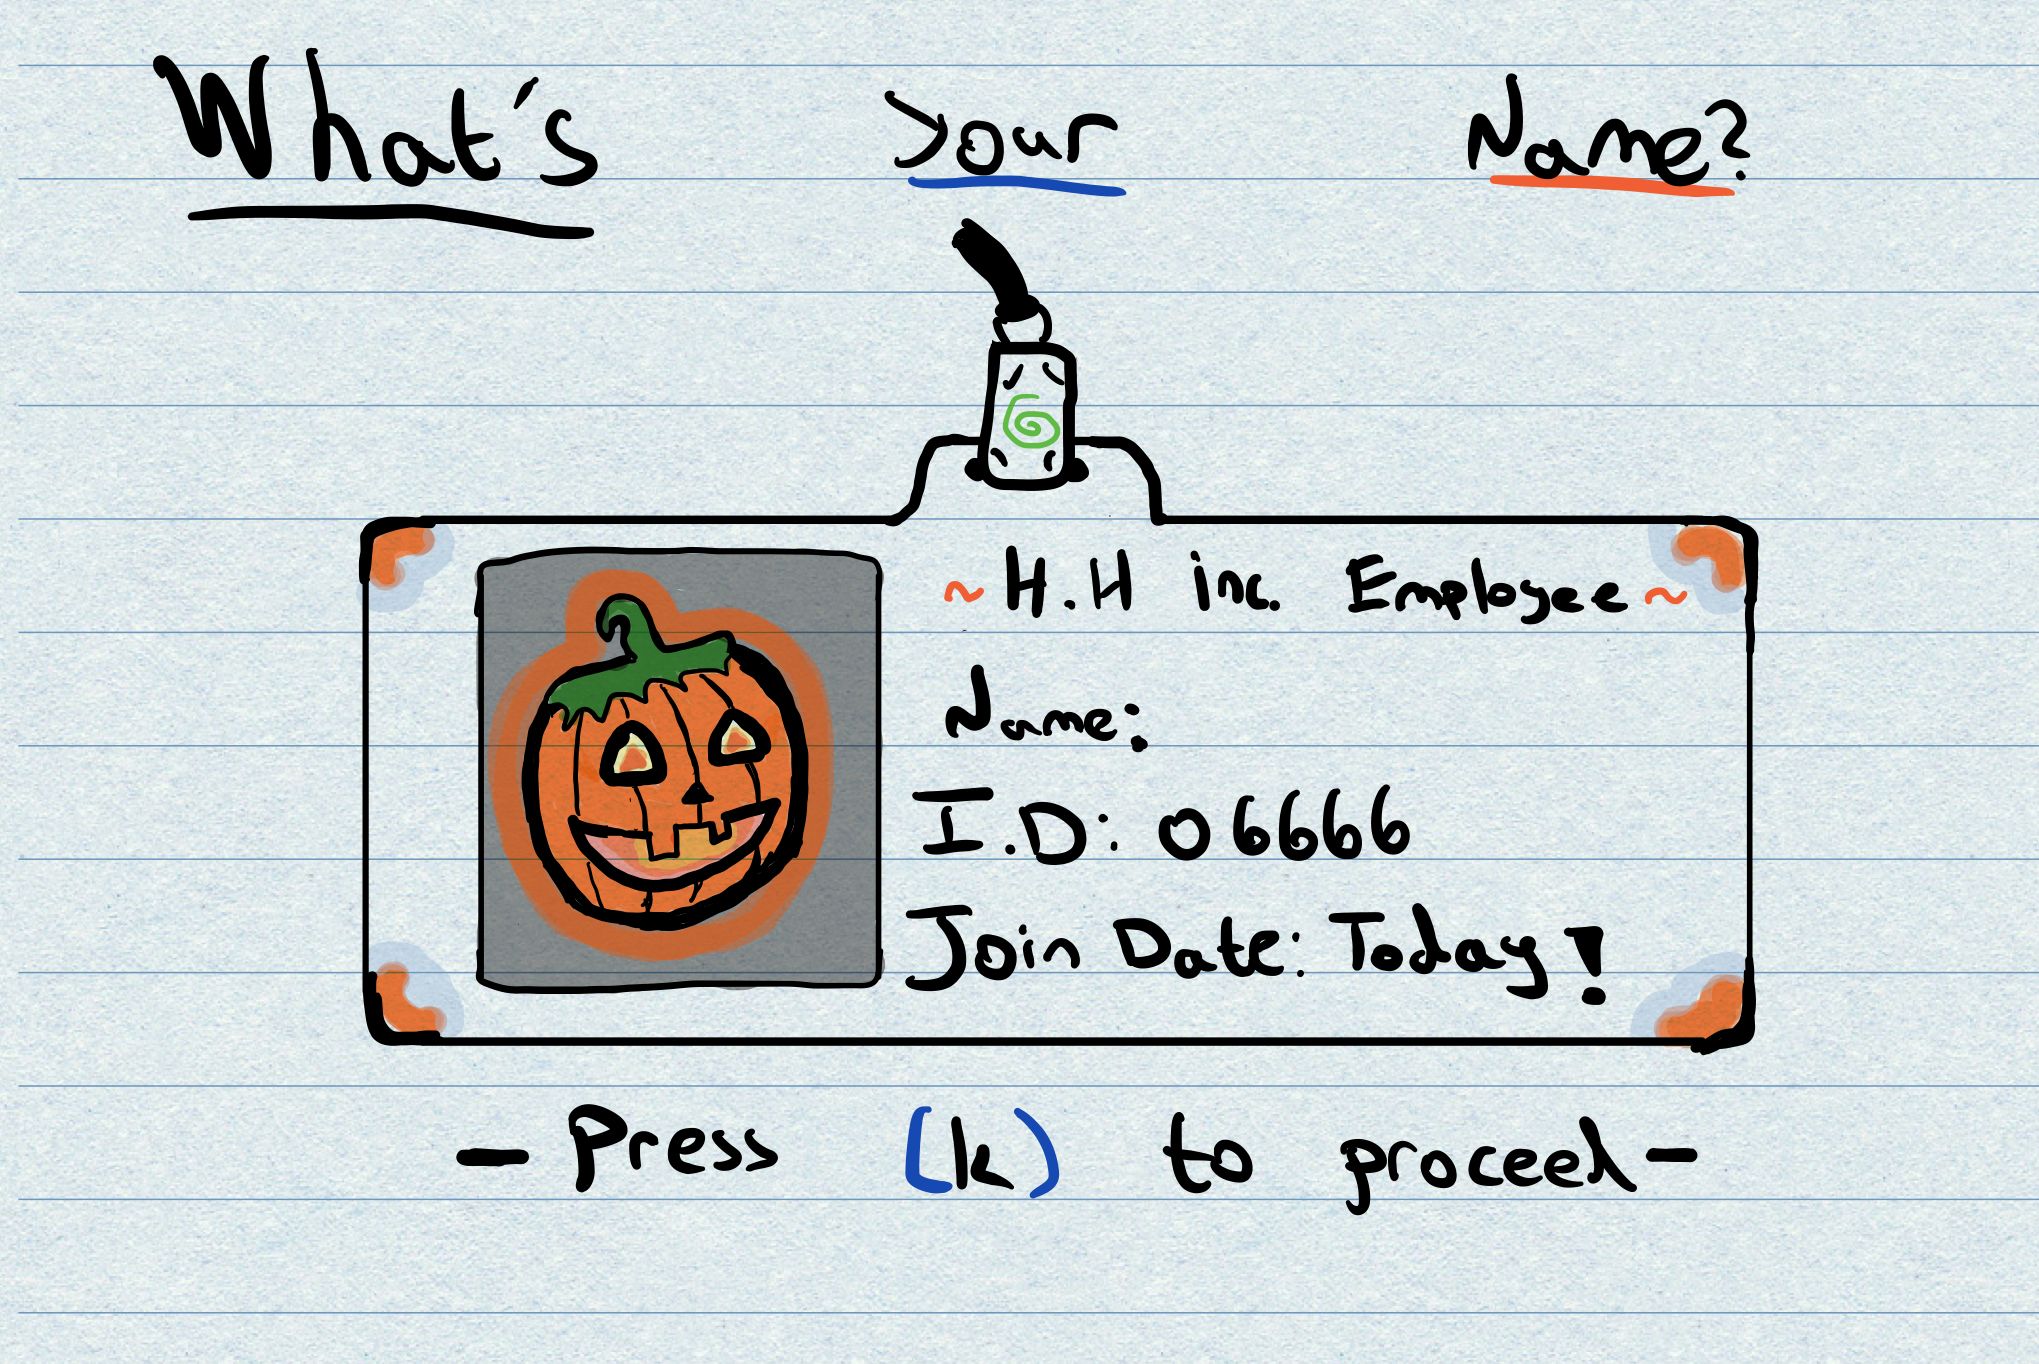 What's Your Name?
~ H.H inc. Employee ~
Name:
I.D: 06666
Join Date: Today!
- Press (k) to proceed -